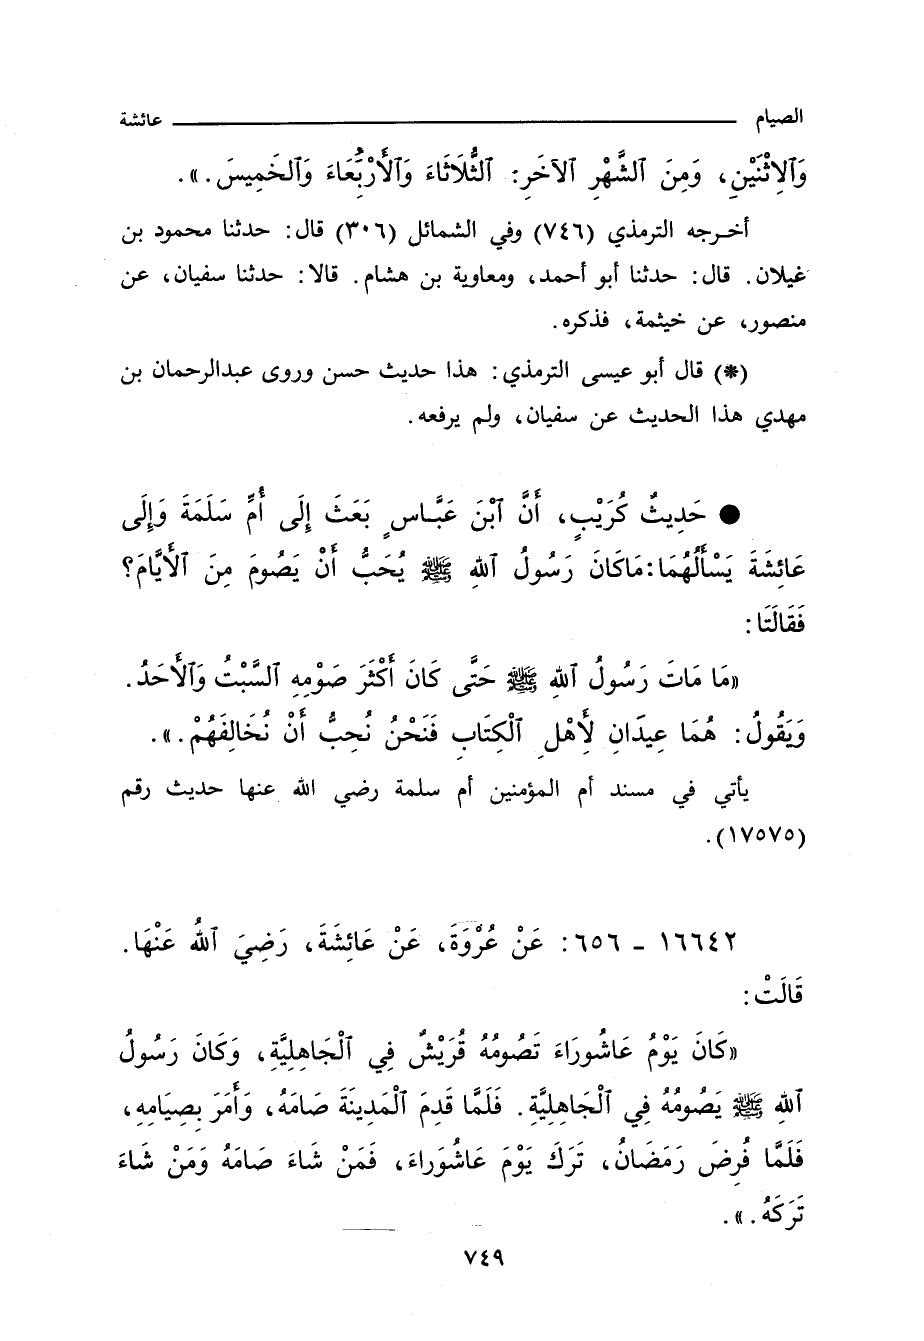 الصيام ــــــــــ عائشة
وَٱلِاثْنَيْنِ، وَمِنَ ٱلشَّهْرِ ٱلآخَرِ: ٱلثُّلَاثَاءَ وَٱلْأَرْبُعَاءَ وَٱلخَمِيسَ.».
أخرجه الترمذي (٧٤٦) وفي الشمائل (٣٠٦) قال: حدثنا محمود بن
غيلان. قال: حدثنا أبو أحمد، ومعاوية بن هشام. قالا: حدثنا سفيان، عن
منصور، عن خيثمة، فذكره.
(*) قال أبو عيسى الترمذي: هذا حديث حسن وروى عبدالرحمان بن
مهدي هذا الحديث عن سفيان، ولم يرفعه.
● حَدِيثُ كُرَيْبٍ، أَنَّ ٱبْنَ عَبَّاسٍ بَعَثَ إِلَى أُمِّ سَلَمَةَ وَإِلَى
عَائِشَةَ يَسْأَلُهُمَا: مَاكَانَ رَسُولُ ٱللهِ ﷺ يُحَبُّ أَنْ يَصُومَ مِنَ ٱلْأَيَّامَ؟
فَقَالَتَا:
«مَا مَاتَ رَسُولُ ٱللهِ ﷺ حَتَّى كَانَ أَكْثَرَ صَوْمِهِ ٱلسَّبْتُ وَٱلْأَحَدُ.
وَيَقُولُ: هُمَا عِيدَانِ لِأَهْلِ ٱلْكِتَابِ فَنَحْنُ نُحِبُّ أَنْ نُخَالِفَهُمْ.».
يأتي في مسند أم المؤمنين أم سلمة رضي الله عنها حديث رقم
(١٧٥٧٥).
١٦٦٤٢ - ٦٥٦: عَنْ عُرْوَةَ، عَنْ عَائِشَةَ، رَضِيَ ٱللهُ عَنْهَا.
قَالَتْ:
«كَانَ يَوْمُ عَاشُورَاءَ تَصُومُهُ قُرَيْشٌ فِي ٱلْجَاهِلِيَّةِ، وَكَانَ رَسُولُ
ٱللهِ ﷺ يَصُومُهُ فِي ٱلْجَاهِلِيَّةِ. فَلَمَّا قَدِمَ ٱلْمَدِينَةَ صَامَهُ، وَأَمَرَ بِصِيَامِهِ،
فَلَمَّا فُرِضَ رَمَضَانُ، تَرَكَ يَوْمَ عَاشُورَاءَ، فَمَنْ شَاءَ صَامَهُ وَمَنْ شَاءَ
تَرَكَهُ.».
٧٤٩